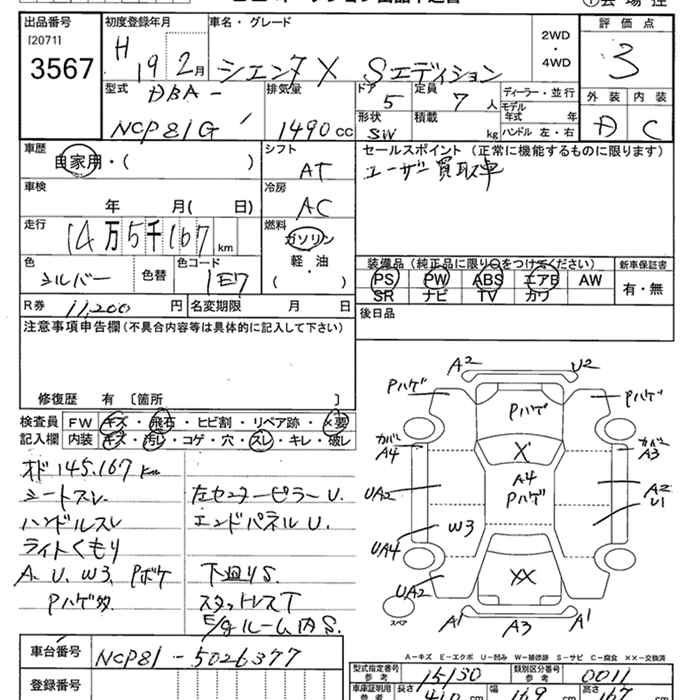 出品番号 初度登録年月 車名・グレード 評価点
[2071] H 19 2月 シエンタ X Sエディション 2WD・4WD 3
3567
型式 排気量 ドア 定員 ディーラー・並行 外装 内装
DBA-NCP81G 1490cc 5 7人 モデル年式 年 A C
形状 積載
SW kg ハンドル 左・右
車歴 シフト セールスポイント (正常に機能するものに限ります)
自家用・( ) AT ユーザー買取車
車検 冷房
年 月( 日) AC
走行 燃料
14万5千167km ガソリン
軽・油
( )
色 カラーコード
シルバー 色替 1E7
装備品 (純正品に限り○をつけてください) 新車保証書
PS PW ABS エアB AW 有・無
SR ナビ TV カワ
R券 11,200円 名変期限 月 日 後日品
注意事項申告欄 (不具合内容等は具体的に記入して下さい)
修復歴 有 〔箇所 〕
検査員記入欄
FW キズ・飛石・ヒビ割・リペア跡・×要
内装 キズ・汚レ・コゲ・穴・スレ・キレ・破レ
オド 145.167km
シートスレ 左センターピラーU.
ハンドルスレ エンドパネルU.
ライトくもり
A、U、W3、Pボケ 下廻りS.
Pハゲ多 スタットレスT
E/gルーム内S.
A2 U2
Pハゲ Pハゲ Pハゲ
カバー A4 X カバー A3
A4
Pハゲ
UA2 A2
U1
W3
UA4
UA2 XX
スペア A1 A3 A1
A-キズ E-エクボ U-凹み W-補修跡 S-サビ C-腐食 ××-交換済
車台番号 NCP81-5026377
登録番号
型式指定番号 参考 15130 類別区分番号 参考 0011
車庫証明用 参考 長さ 410cm 幅 169cm 高さ 167cm